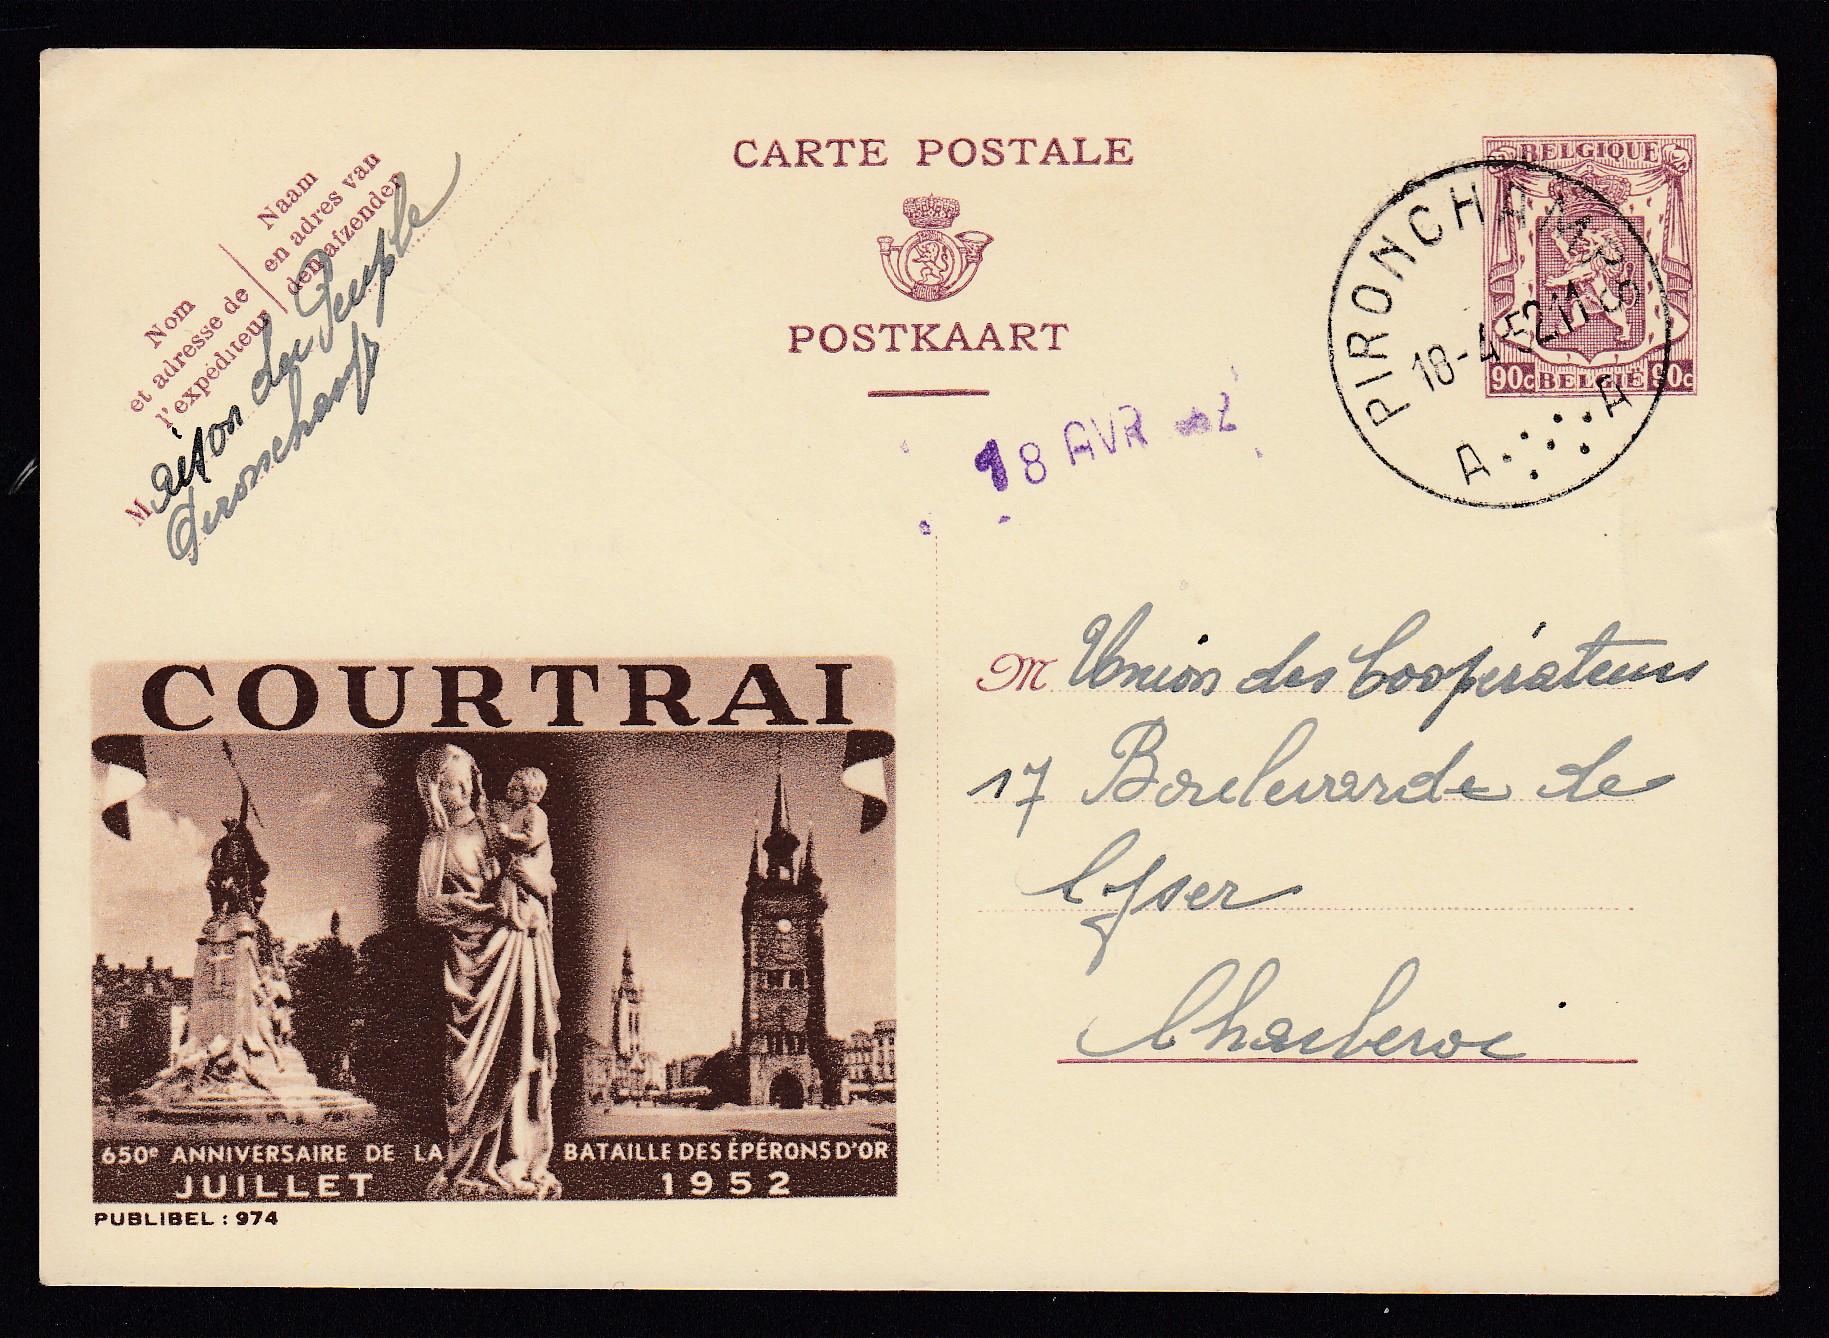 CARTE POSTALE
POSTKAART
Nom
et adresse de
l'expéditeur
Naam
en adres van
den afzender
Maison du Peuple
Pironchamps
BELGIQUE
90c BELGIE 90c
PIRONCHAMPS
18-4-52.11
A A
18 AVR
M Union des Coopérateurs
17 Boulevarde de
l'Yser
Charleroi
COURTRAI
650e ANNIVERSAIRE DE LA BATAILLE DES ÉPÉRONS D'OR
JUILLET 1952
PUBLIBEL : 974